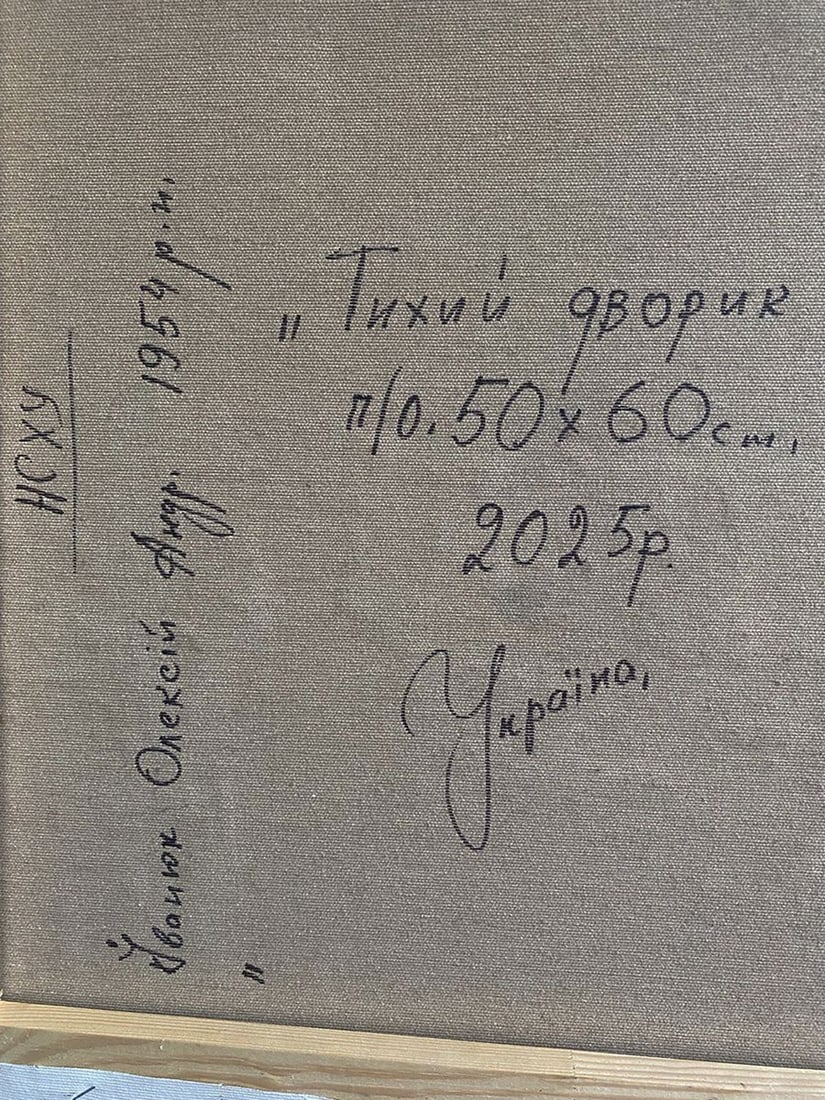 НСХУ
Іванюк Олексій Андр. 1954 р.н.
"
„ Тихий дворик
п/о. 50х60см.
2025р.
Україна,